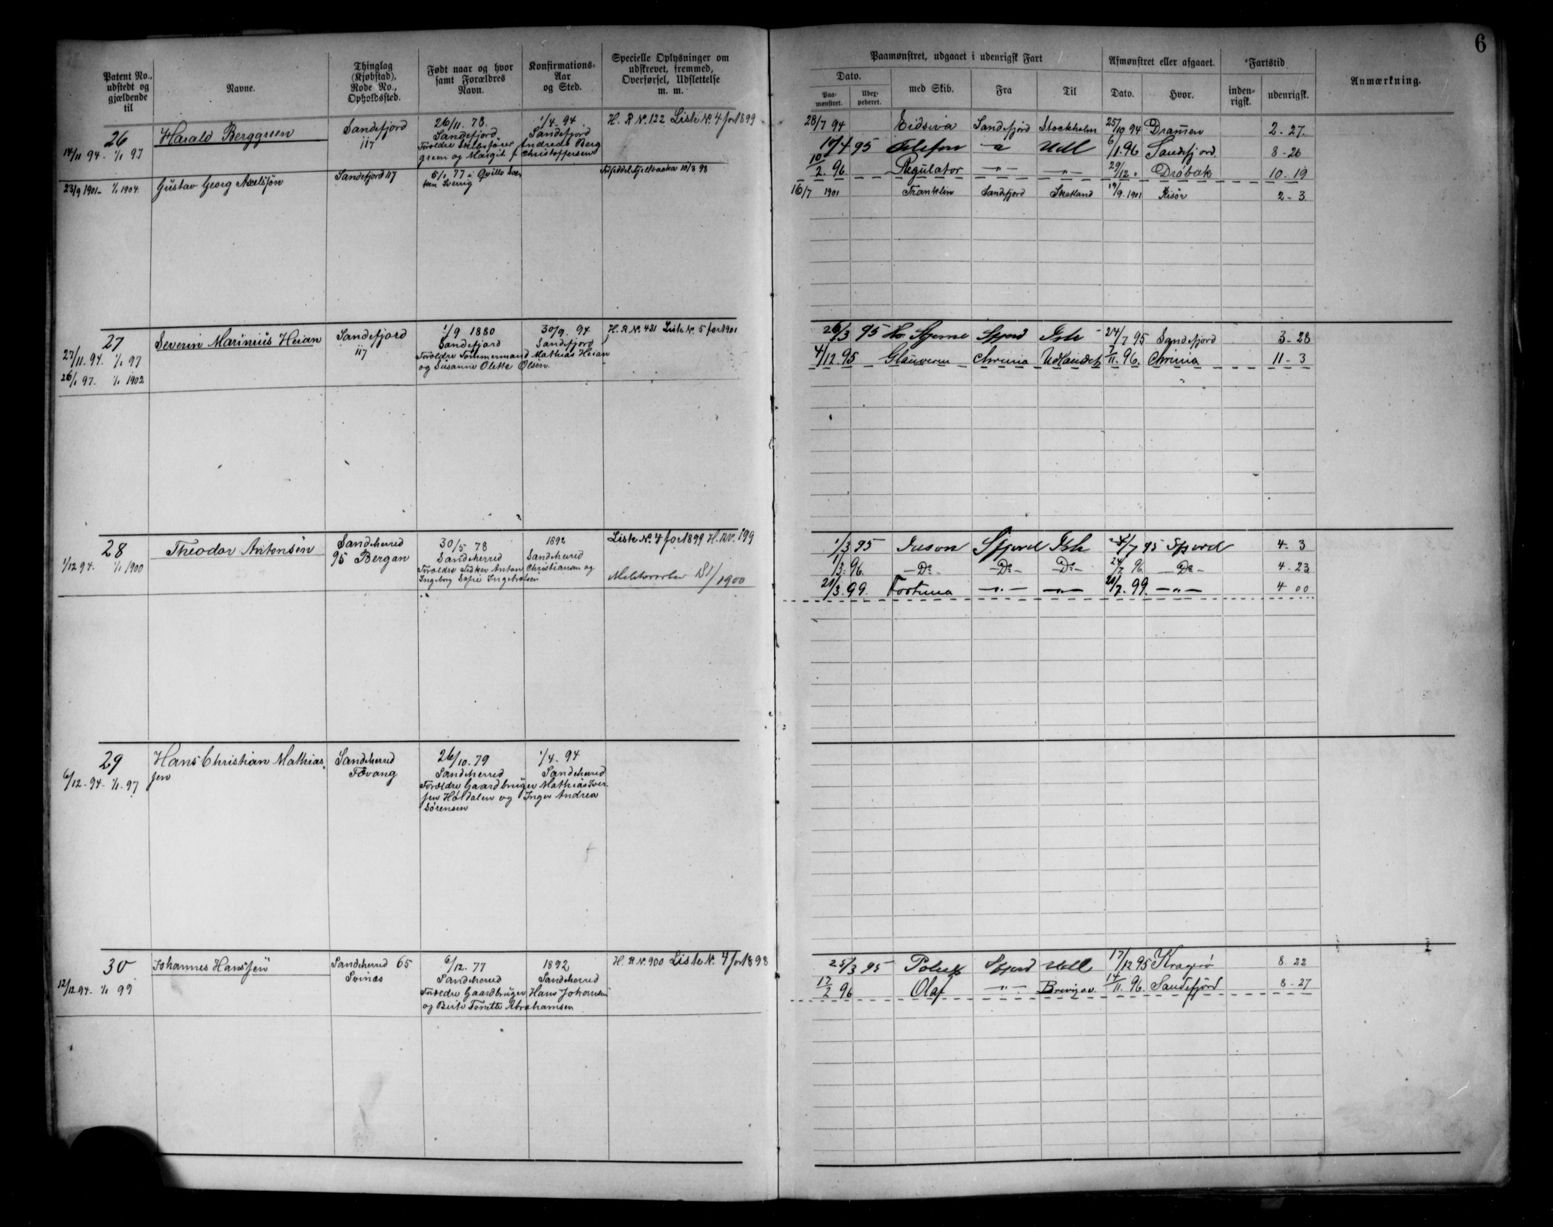 6
Patent No., udstedt og gjældende til
Navne.
Thinglag (Kjøbstad), Rode No., Opholdssted.
Født naar og hvor samt Forældres Navn.
Konfirmations-Aar og Sted.
Specielle Oplysninger om udskrevet, fremmed, Overførsel, Udslettelse m. m.
Paamønstret, udgaaet i udenrigsk Fart
Dato.
Paa-mønstret.
med Skib.
Fra
Til
Afmønstret eller afgaaet.
Dato.
Hvor.
Fartstid
inden-rigsk.
udenrigsk.
Anmærkning.
26
14/11 94. 1/1 97
Harald Berggreen
Sandefjord
117
26/11. 78.
Sandefjord
1/4. 94
Sandefjord
H. R № 122 Liste №. 4 for 1899
28/7 94 Eidsiva Sandefjord Stockholm 25/10 94 Drammen 2-27.
17/4 95 Udl 6/1 96 Sandefjord 8-26
10/2. 96. Regulator 29/12 Drøbak 10-19
23/9 1901 1/1 1904.
Gustav Georg Axelssøn
Sandefjord 117
16/7 1901 Franklin Sandefjord 19/9. 1901 Risør 2-3
27
27/11. 94. 1/1 97
26/1 97. 1/1 1902
Severin Marinius Heian
Sandefjord
117
1/9 1880
Sandefjord
Forældre Tømmermand Mathias Heian
og Susanne Olette Olsen
30/9. 94
Sandefjord
H. R №. 431 Liste №. 5 for 1901
26/3 95 Stjerne Sfjord Ish 24/7 95 Sandefjord 3-28
4/12 95 Chrınia Udlandet 96. Chrınia 11-3
28
1/12 94. 1/1 1900
Theodor Antonsen
Sandeherred
95 Bergan
30/5 78
Sandeherred
1892
Sandeherred
Forældre Fisker Anton Christianson og
Ingeborg Sofie Ingebretsen
Liste №. 4 for 1899 H. R №. 199
Militærrulle 1900
1/3 95 Jason Sfjord Ish /7 95 Sfjord 4-3
1/3. 96. Do Do Do 24/7 96 Do 4-23
21/3. 99. Fortuna 21/7. 99. 4 00
29
6/12. 94. 1/1. 97
Hans Christian Mathias
sen
Sandeherred
Fevang
26/10. 79
Sandeherred
1/4. 94
Sandeherred
Forældre Gaardbruger Mathias Iver
sen Hasdalen og Inger Andrea
Sørensen
30
12/12 94. 1/1 99
Johannes Hanssen
Sandeherred 65
6/12. 77
Sandeherred
1892
Sandeherred
Forældre Gaardbruger Hans Johansen
og Berte Torette Abrahamsen
H. R №. 900 Liste №. 4 for 1898
25/3 95 Sfjord Udl 17/12 95 Kragerø 8-22
12/2 96 Olaf 14/11. 96. Sandefjord 8-27